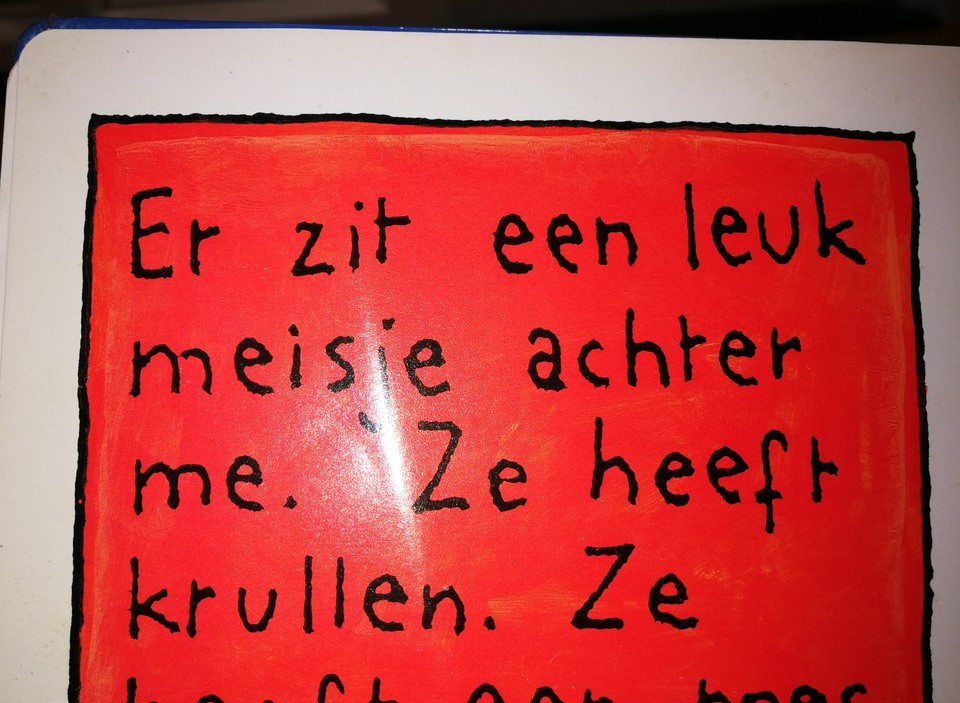 Er zit een leuk
meisje achter
me. Ze heeft
krullen. Ze
heeft een